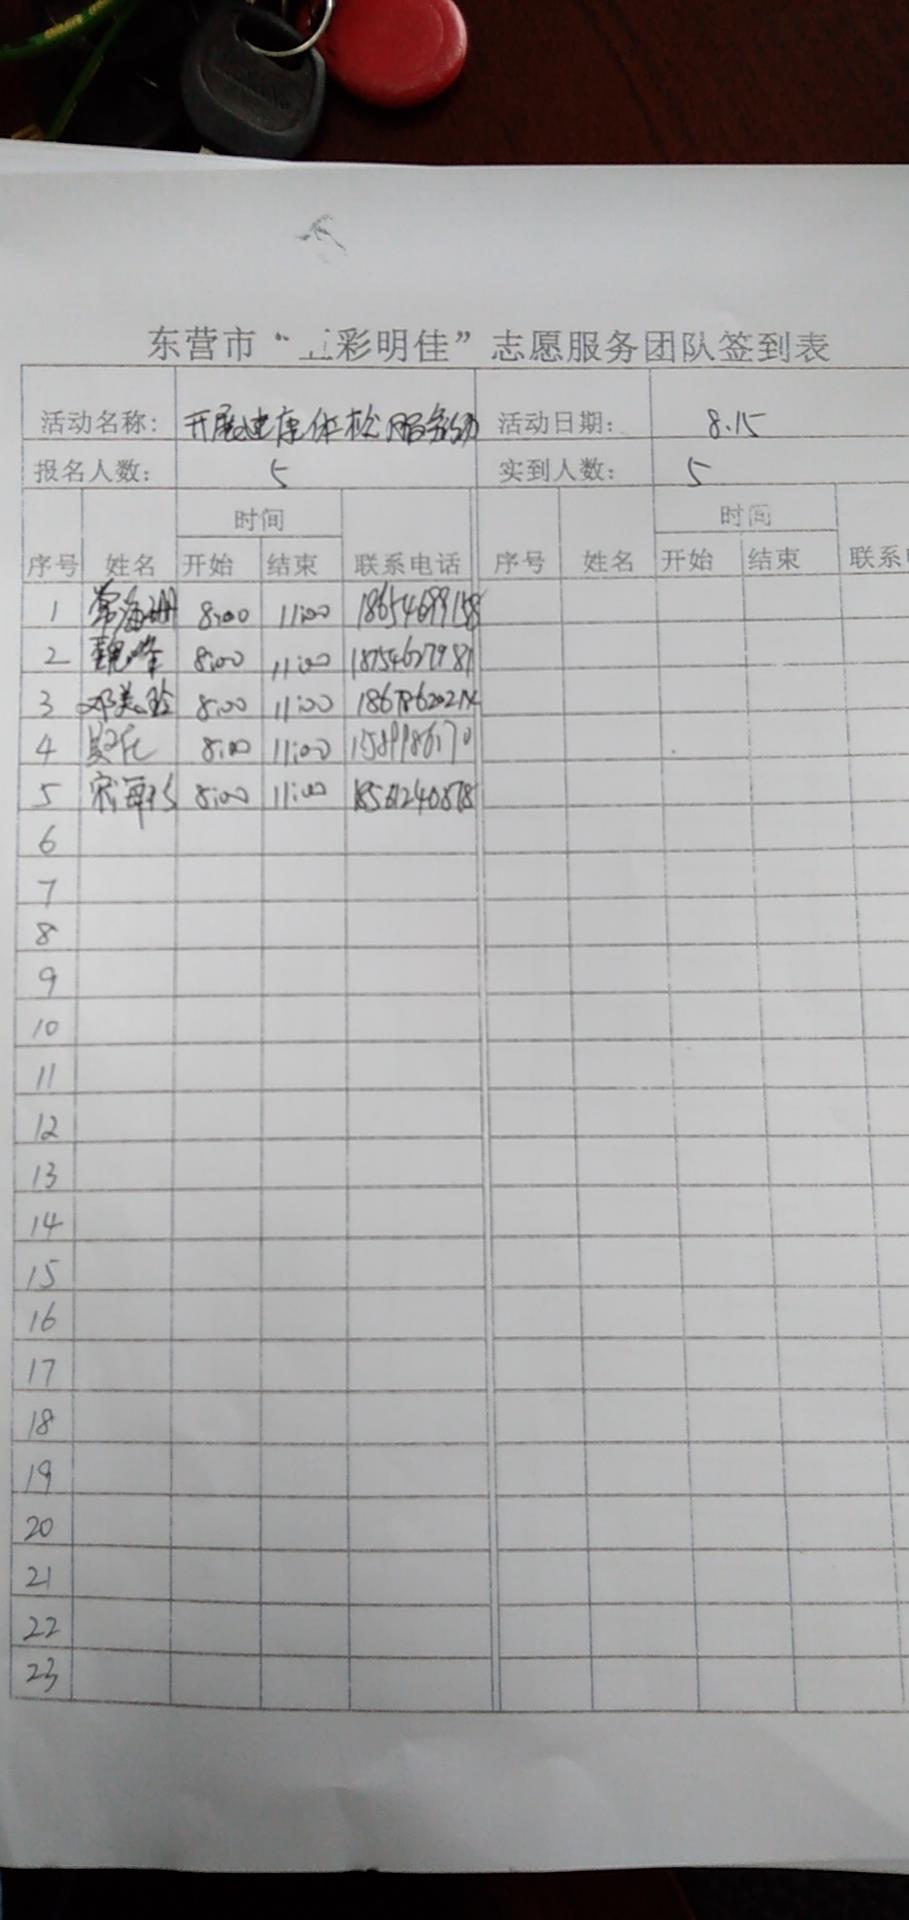 东营市“五彩明佳”志愿服务团队签到表
活动名称： 开展健康体检服务活动 活动日期： 8.15
报名人数： 5 实到人数： 5
时间 时间
序号 姓名 开始 结束 联系电话 序号 姓名 开始 结束 联系
1 常海珊 8:00 11:00 18654699158
2 魏峰 8:00 11:00 18754627987
3 邓美玲 8:00 11:00
4 8:00 11:00
5 8:00 11:00
6
7
8
9
10
11
12
13
14
15
16
17
18
19
20
21
22
23